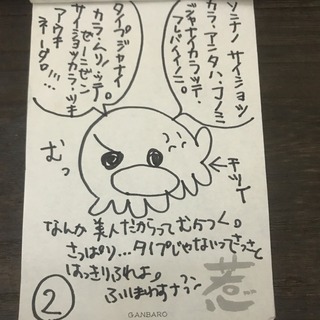 ソンナノ サイショッ
カラ、アンタハ、コノミ
ジャナイカラッテ、
フレバイイノニ。
タイプジャナイ
カラ、ムリッテ。
ゼーニゼン
サイショッカラ、ツキ
アウキ
ネーダロ!!!
むっ
←チッイ
なんか美人だからってむらつく。
さっぱり…タイプじゃないってさっさと
はっきりふれよ。
ふりまわすナう
惹
②
GANBARO